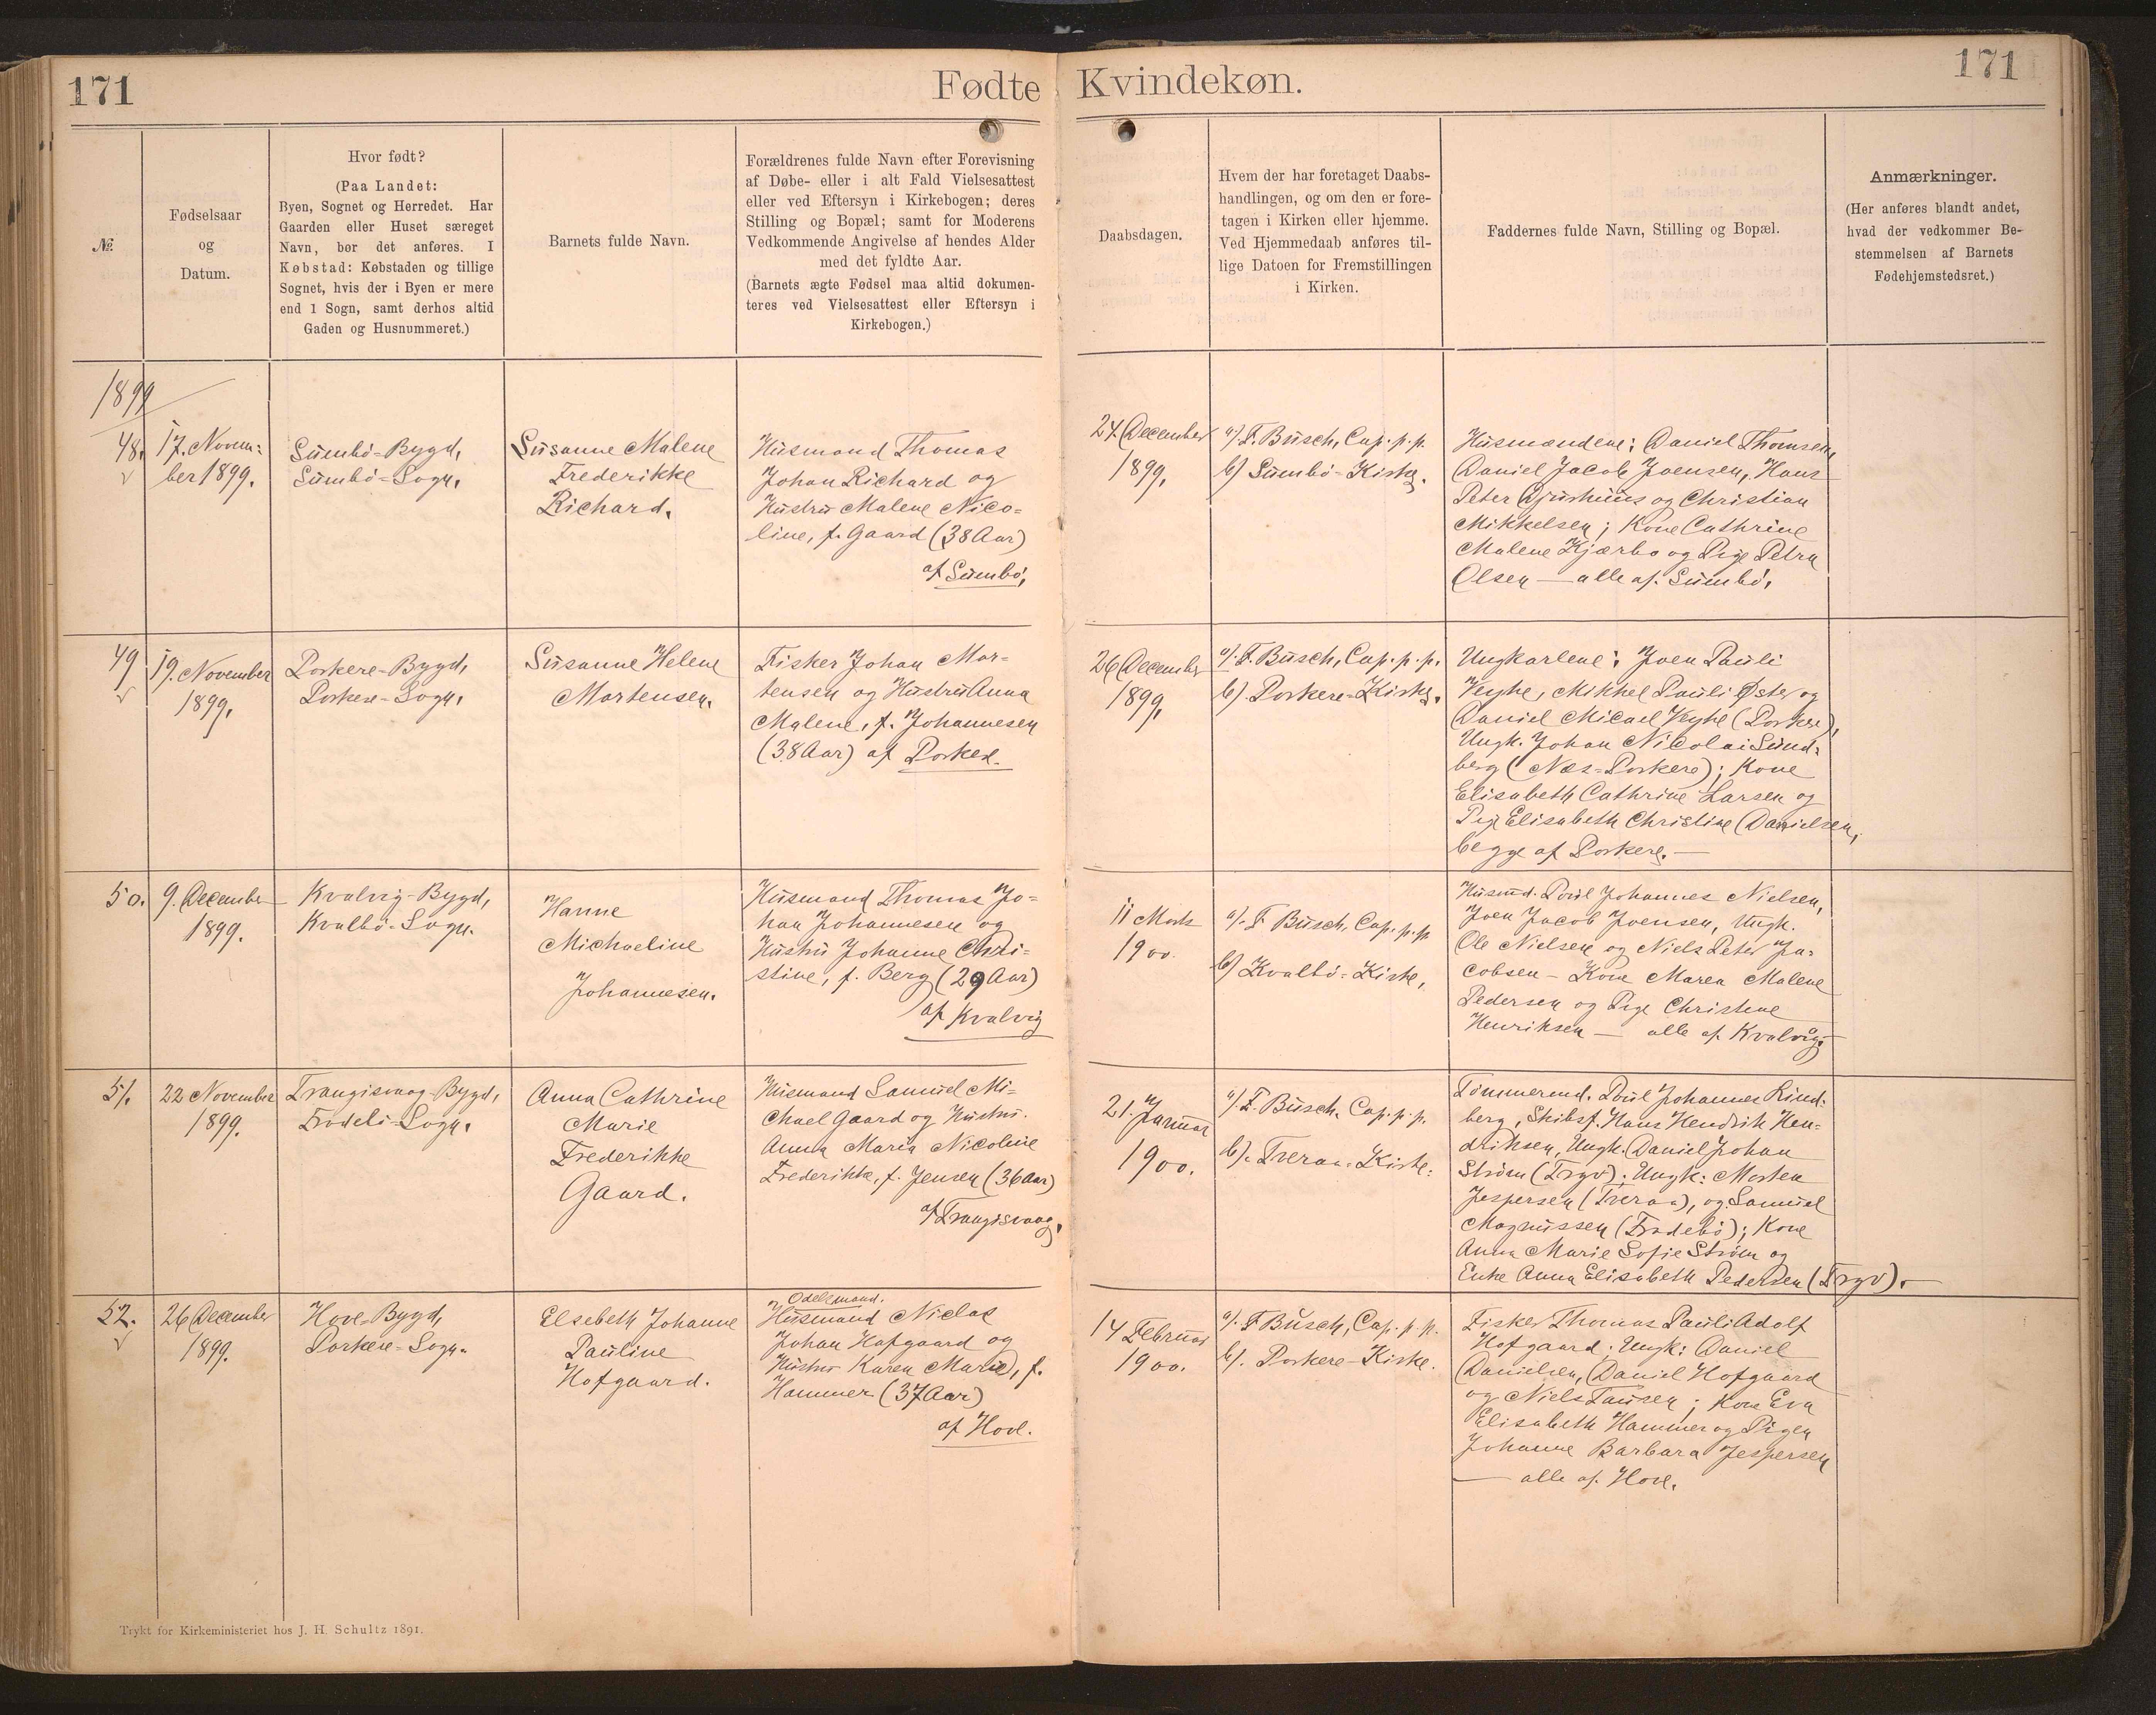 171
Fødte
Kvindekøn.
171
№
Fødselsaar
og
Datum.
Hvor født?
(Paa Landet:
Byen, Sognet og Herredet. Har
Gaarden eller Huset særeget
Navn, bør det anføres. I
Købstad: Købstaden og tillige
Sognet, hvis der i Byen er mere
end 1 Sogn, samt derhos altid
Gaden og Husnummeret.)
Barnets fulde Navn.
Forældrenes fulde Navn efter Forevisning
af Døbe- eller i alt Fald Vielsesattest
eller ved Eftersyn i Kirkebogen; deres
Stilling og Bopæl; samt for Moderens
Vedkommende Angivelse af hendes Alder
med det fyldte Aar.
(Barnets ægte Fødsel maa altid dokumen-
teres ved Vielsesattest eller Eftersyn i
Kirkebogen.)
Daabsdagen.
Hvem der har foretaget Daabs-
handlingen, og om den er fore-
tagen i Kirken eller hjemme.
Ved Hjemmedaab anføres til-
lige Datoen for Fremstillingen
i Kirken.
Faddernes fulde Navn, Stilling og Bopæl.
Anmærkninger.
(Her anføres blandt andet,
hvad der vedkommer Be-
stemmelsen af Barnets
Fødehjemstedsret.)
1899
48.
17. Novem:
ber 1899.
Sumbö-Bygd,
Sumbö-Sogn.
Susanne Malene
Frederikke
Richard.
Husmand Thomas
Johan Richard og
Hustru Malene Nico=
line, f. Gaard (38 Aar)
af Sumbö,
24 December
1899,
a) F. Busch, Cap. p. p.
b) Sumbö-Kirke.
Husmændene: Daniel Thomsen,
Daniel Jacob Joensen, Hans
Peter og Christian
Mikkelsen; Kone Cathrine
Malene Kjærbo og Pige Petra
Olsen — alle af Sumbö,
49
19. November
1899,
Porkere-Bygd,
Porkere-Sogn,
Susanne Helene
Mortensen.
Fisker Johan Mor-
tensen og Hustru Anna
Malene, f. Johannesen
(38 Aar) af Porkere.
26 December
1899,
a). F. Busch, Cap. p. p.
b). Porkere-Kirke.
Ungkarlene: Joen Pauli
Veyhe, Mikkel Pauli Øster og
Daniel Micael Veyhe (Porkere),
Ungk. Johan Nicolai Sund=
berg (Næs-Porkere); Kone
Elisabeth Cathrine Larsen og
Pige Elisabeth Christine Danielsen,
begge af Porkere. —
50.
9. December
1899.
Kvalvig-Bygd,
Kvalbö-Sogn.
Hanne
Michaeline
Johannesen.
Husmand Thomas Jo=
han Johannesen og
Hustru Johanne Chri=
stine, f. Berg (29 Aar)
af Kvalvig
11 Marts
1900.
a). F Busch, Cap. p. p.
b) Kvalbö-Kirke,
Husmd. Poul Johannes Nielsen,
Joen Jacob Joensen, Ungk.
Ole Nielsen og Niels Peter Ja=
cobsen — Kone Maren Malene
Pedersen og Pige Christine
Henriksen — alle af Kvalvig
51.
22 November
1899.
Trangisvaag-Bygd,
Frodebö-Sogn.
Anna Cathrine
Marie
Frederikke
Gaard.
Husmand Samuel Mi=
chael Gaard og Hustru
Anna Maria Nicoline
Frederikke, f. Jensen (36 Aar)
af Trangisvaag,
21. Januar
1900.
a). F. Busch, Cap. p. p.
b). Tveraa-Kirke.
Tömmermd. Poul Johannes Rind=
berg, Skibsf. Hans Hendrik Hen=
driksen, Ungk. Daniel Johan
Ström (Trgv); Ungk: Morten
Jespersen (Tveraa), og Samuel
Magnussen (Frodebö); Kone
Anna Marie Sofie Ström og
Enke Anna Elisabeth Pedersen (Trgv).
52.
26 December
1899.
Hove-Bygd,
Porkere-Sogn.
Elsebeth Johanne
Pauline
Hofgaard.
Odelsmand.
Husmand Niclas
Johan Hofgaard og
Hustru Karen Marie, f.
Hammer (37 Aar)
af Hove.
14 Februar
1900.
a). F Busch, Cap. p. p.
b). Porkere-Kirke.
Fisker Thomas Pauli Adolf
Hofgaard; Ungk: Daniel
Danielsen, Daniel Hofgaard
og Niels Tausen; Kone Eva
Elisabeth Hammer og Pigen
Johanne Barbara Jespersen
— alle af Hove.
Trykt for Kirkeministeriet hos J. H. Schultz 1891.